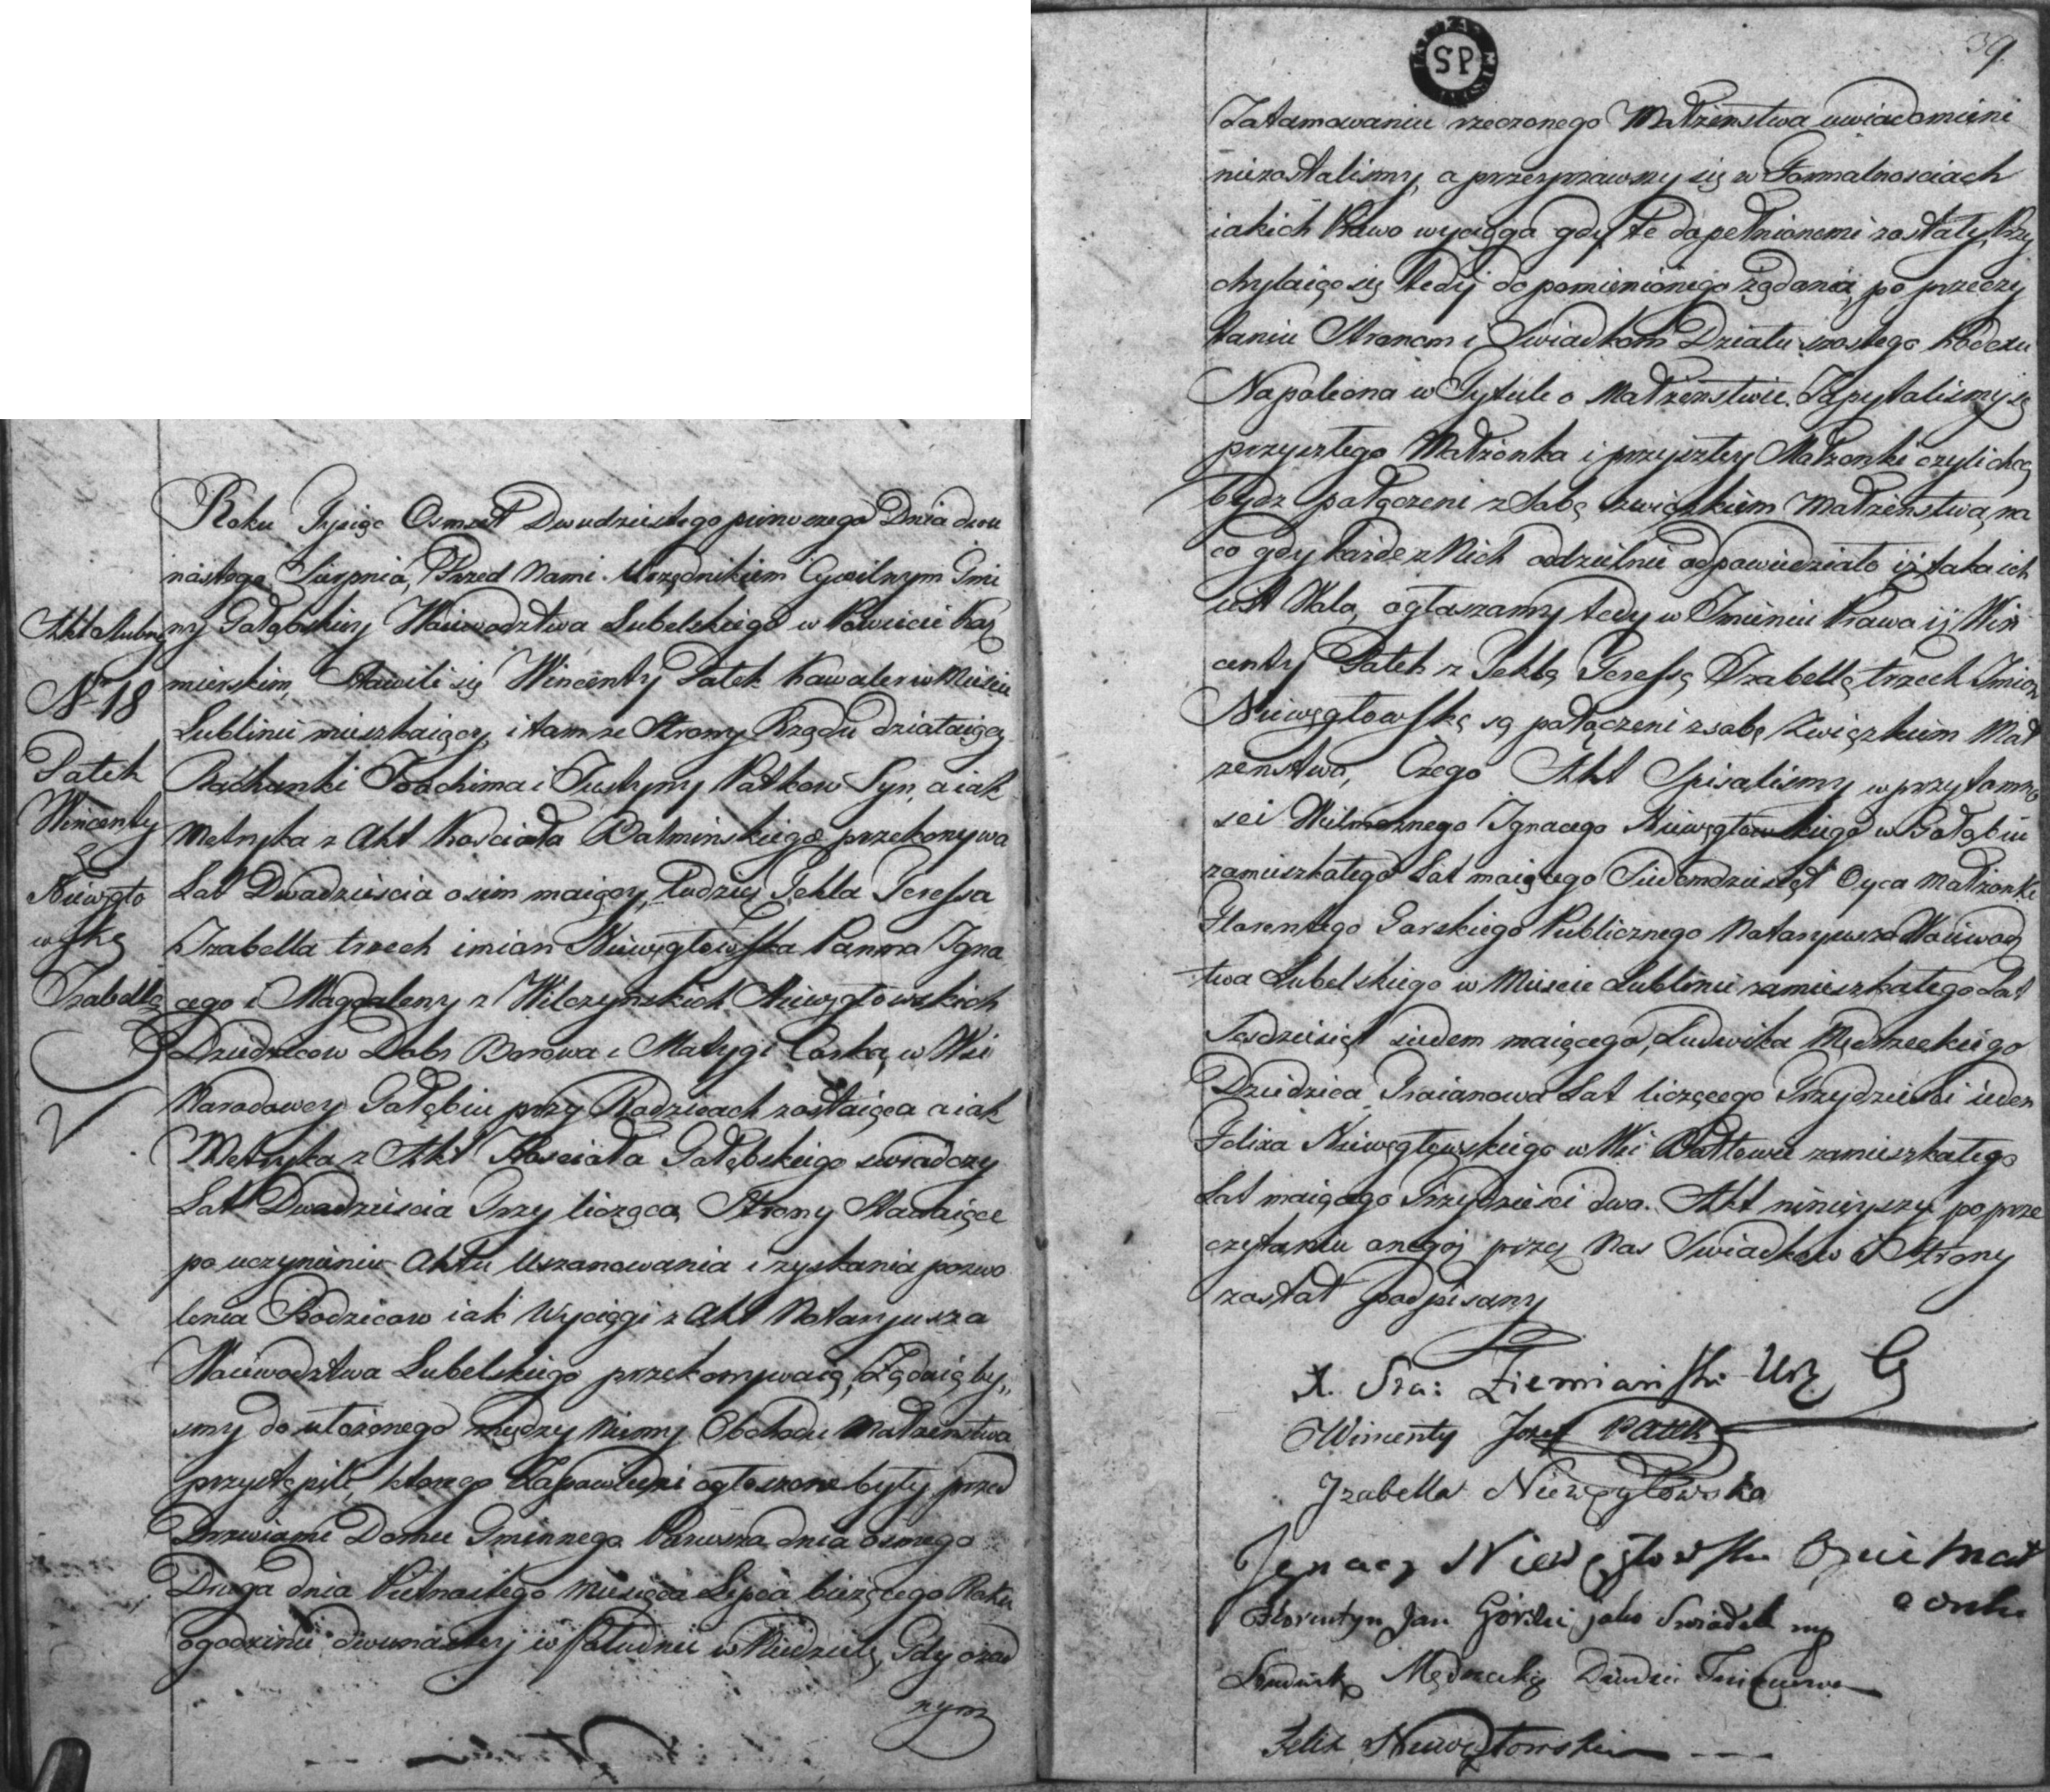 Akt slubny
Nr 18
Patek
Wincenty
z
Niewęgło
wską
Izabellą
Roku Tysiąc Osmset Dwudziestego pierwszego Dnia dwu
nastego Sierpnia, Przed Nami Urzędnikiem Cywilnym Gmi
ny Gołąbskiey Woiewodztwa Lubelskiego w Powiecie Kaz
mierskim, Stawili się Wincenty Patek Kawaler w Miescie
Lublinie mieszkaiący, i tam ze Strony Rządu działaiący
Rachunki Joachima i Justyny Patkow Syn, a iak
Metryka z Akt Kościoła przekonywa
Lat Dwadziescia osim maiący, tudzież Tekla Teressa
Izabella trzech imion Niewęgłowska Panna Igna
cego i Magdaleny z Wilczyńskich Niewęgłowskich
Dziedzicow Dobr Borowa i Matygi Corka, w Wsi
Narodowey Gołębiu przy Rodzicach zostaiąca a iak
Metryka z Akt Koscioła Gołębskiego swiadczy
Lat Dwadziescia Trzy licząca, Strony Stawaiące
po uczynieniu Aktu Uszanowania i zyskania pozwo
lenia Rodzicow iak Wyciągi z Akt Notaryusza
Woiewodztwa Lubelskiego przekonywaią, Żądaią by„
smy do ułożonego między niemi Obchodu Małżenstwa
przystąpili, ktorego Zapowiedzi ogłoszone były przed
Drzwiami Domu Gminnego Pierwsza dnia osmego
Druga dnia Pietnastego Miesiąca Lipca bieżącego Roku
o godzinie dwunastey w Południe w Niedzielę, Gdy o żad
nym
39
SP
Zatamowaniu rzeczonego Małżenstwa uwiadomieni
niezostalismy, a przeyrzawszy się w Formalnosciach
iakich Prawo wyciąga gdy te dopełnionemi zostały, Przy
chylaiąc się tedy do pomienionego żądania, po przeczy
taniu Stronom i Swiadkom Działu szostego Kodexu
Napoleona w Tytule o Małżenstwie. Zapytalismy się
przyszłego Małżonka i przyszłey Małżonki czyli chcą
bydz połączeni z Sobą związkiem Małżenstwa, na
co gdy każde z Nich oddzielnie odpowiedziało iż taka ich
iest Wola, ogłaszamy tedy w Imieniu Prawa iż Win
centy Patek z Teklą Teressą Izabellą trzech Imion
Niewęgłowską są połączeni z sobą Związkiem Mał
żenstwa, Czego Akt Spisalismy w przytomno
sci Wielmożnego Ignacego Niewęgłowskiego w Gołąbiu
zamieszkałego Lat maiącego Siedemdziesiąt Oyca Małżonki
Florentego Gorskiego Publicznego Notaryusza Woiewodz
twa Lubelskiego w Miescie Lublinie zamieszkałego Lat
siedem maiącego, Ludwika Mędrzeckiego
Dziedzica Traianowa Lat liczącego Trzydziesci ieden
Felixa Niewęgłowskiego w Wsi zamieszkałego
Lat maiącego Trzydziesci dwa. Akt ninieyszy po prze
czytaniu onegoż przez Nas Swiadkow i Strony
został podpisany
X. Fra: Ziemiański Urz C
Wincenty Jozef Patek
Izabella Niewęgłowska
Ignacy Niewęgłowski Oyciec Małż
onki
Florentyn Jan Górski jako Swiadek mp
Ludwik Mędrzecki Dziedzic Traianowa
Felix Niewęgłowski